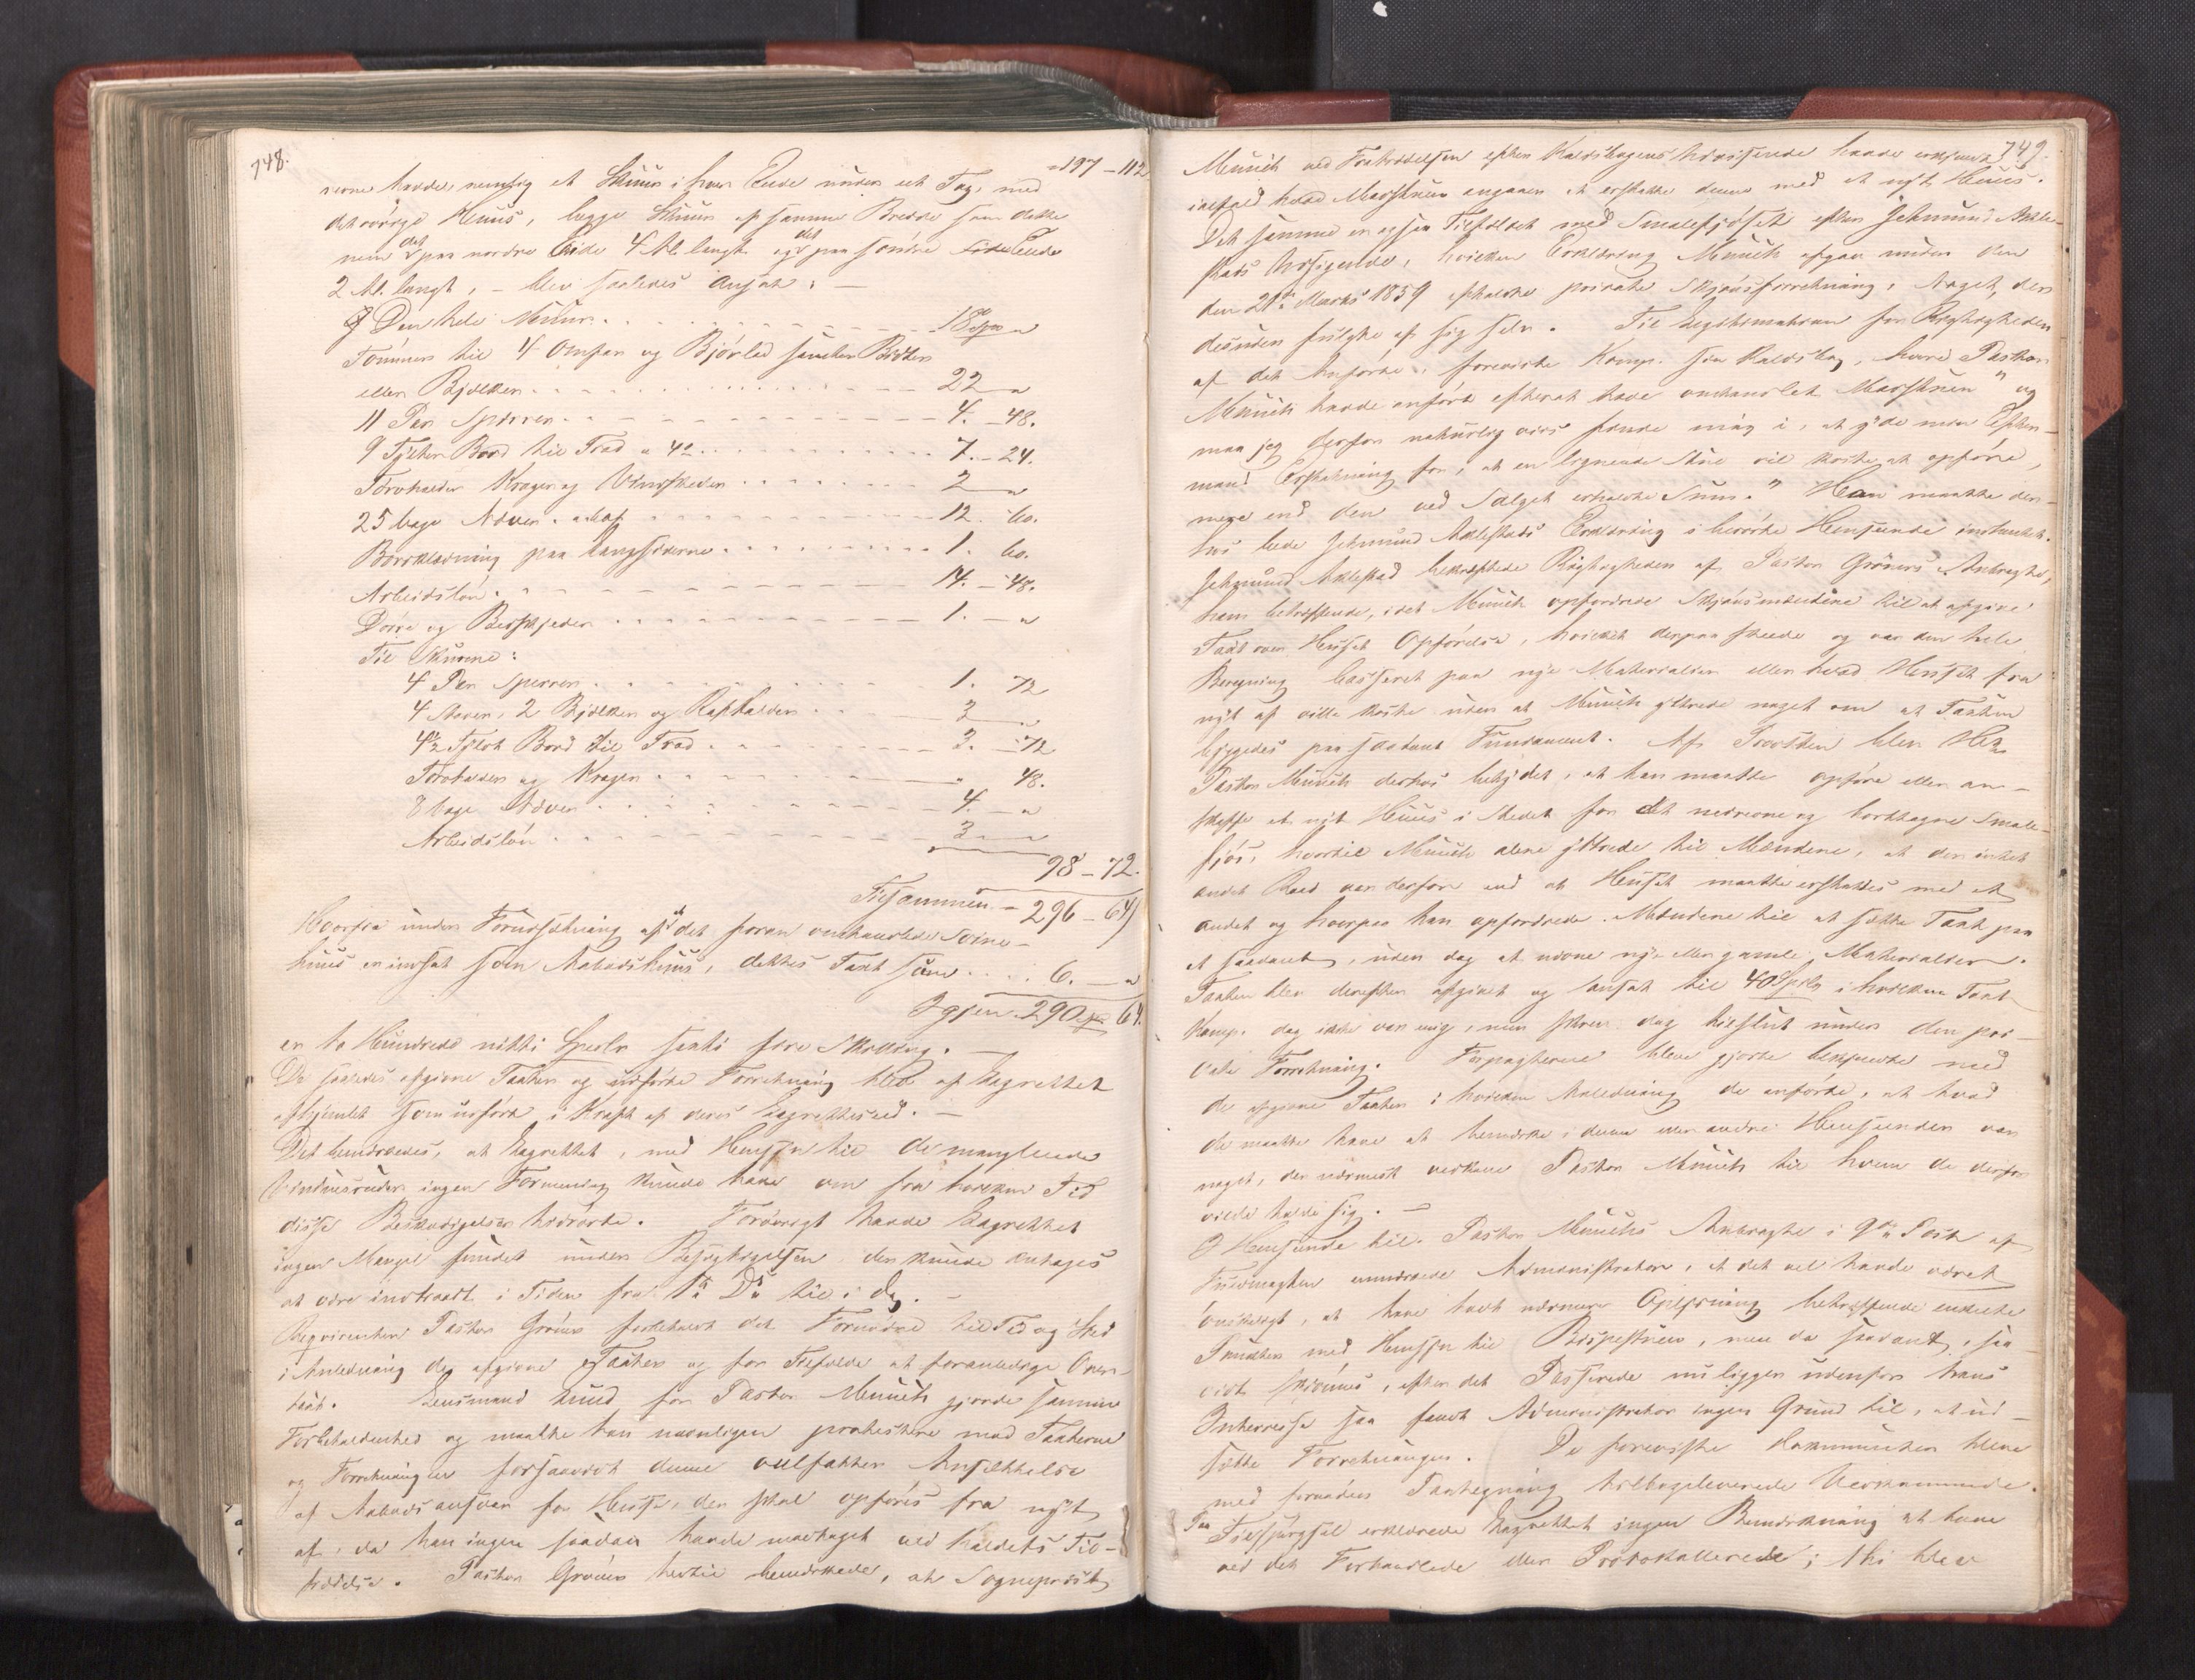 748.
197 – 112
verne havde, nemlig et Skuur i hver Ende under eet Tag med
det øvrige Huus, begge Skuur af samme Bredde som dette
men det paa nordre Side 4 Al. langt og det paa søndre Side Ende
2 Al. langt, – blev saaledes ansat: –
Den hele Muur . . . 18 Spd "
Tømmer til 4 Omfar og Bjørlad samt
eller Bjelker . . . 22 "
11 Par Sperrer . . . 4. – 48.
9 Tylter Bord til Trod a 4 . . . 7. – 24.
Torvhalder Krager og Vindskeder . . . 2 "
25 Vage Næver . . . 12. 60.
Bordklædning paa Langsiderne . . . 1. 60.
Arbeidsløn . . . 14. – 48.
Dørre og Beslag . . . 1. – "
Til Skurene:
4 Par Sperrer . . . 1. 72
4 Staver, 2 Bjelker og Rafthalder . . . 3 "
4½ Tylvt Bord til Trod . . . 3. – 72
Torvhalder og Krager . . . " 48.
8 Vage Næver . . . 4. – "
Arbeidsløn . . . 3 – "
98 – 72.
Tilsammen – 296 – 64
Hvorfra under Forudsætning af at det foran omhandlede Svine-
huus er indsat som Aabodshuus, dettes Taxt som . . . 6. – "
Igjen 290 Spd 64.
er to Hundrede nitti Specdlr sexti fire Skilling. –
De saaledes afgivne Taxter og udførte Forretning blev af Lagrettet
afhjemlet som udført i Kraft af deres Lagrettesed. –
Det bemærkedes, at Lagrettet, med Hensyn til de manglende
Vinduesruder ingen Formening kunde have om fra hvilken Tid
disse Beskadigelser hidrørte. Forøvrigt havde Lagrettet
ingen Mangel fundet under Besigtigelsen der kunde antages
at være indtraadt i Tiden fra til i Dag. –
Reqvirenten Pastor Grøner forbeholdt det Fornødne til Tid og Sted
i Anledning de afgivne Taxter og for Tilfælde at foranledige Over-
taxt. Lensmand Lund for Pastor Münch gjorde samme
Forbeholdenhed og maatte han navnligen protestere mod Taxterne
og Forretningen forsaavidt denne omfatter Ansættelse
af Aabodsansvar for Huse, der skal opføres fra nyt
af, da han ingen saadan havde modtaget ved Kaldets Til-
trædelse. Pastor Grøner hertil bemærkede, at Sognepræst
749.
Münch ved Fratrædelsen efter Kaldsbogens Udvisende havde erkjendt
ialfald hvad Masstuen angaaer at erstatte denne med et nyt Huus.
Det samme er ogsaa Tilfældet med Smalefjøset efter Jetmund Akle-
stads Udsigende, hvilken Erklæring Münch afgav under den
den 21de Marts 1859 afholdte private Skjønsforretning, Noget, der
desuden fulgte af sig selv. Til Legitimation for Rigtigheden
af det Anførte, foreviste Komp. sin Kaldsbog, hvori Pastor
Münch havde anført efterat have omhandlet Masstuen " og
maa jeg derfor naturligviis finde mig i, at yde min Efter-
mand Erstatning for, at en lignende Stue vil koste at opføre,
mere end den ved Salget erholdte Sum." Han maatte der-
hos bede Jetmund Aklestads Erklæring i berørte Henseende indhentet.
Jetmund Aklestad bekræftede Rigtigheden af Pastor Grøners Anbragte,
ham betræffende, idet Münch opfordrede Skjønsmændene til at afgive
Taxt over Huset Opførelse, hvilket derpaa skeede og var den hele
Beregning basseret paa nye Materialier eller hvad Huset fra
nyt af ville koste uden at Münch yttrede noget om at Taxten
byggedes paa saadant Fundament. Af Provsten blev Hr.
Pastor Münch derhos betydet, at han maatte opføre eller an-
skaffe et nyt Huus i Stedet for det nedrevne og borttagne Smale-
fjøs, hvortil Münch alene yttrede til Mændene, at der intet
andet Raad var derfore end at Huset maatte erstattes med et
andet og hvorpaa han opfordrede Mændene til at sætte Taxt paa
et saadant, uden dog at nævne nye eller gamle Materialier.
Taxten blev derefter afgivet og ansat til 40 Spdlr i hvilken Taxt
Komp. dog ikke var enig, men skrev dog tilslut under den pri-
vate Forretning. Forpagterne bleve gjorte bekjendte med
de afgivne Taxter i hvilken Anledning de anførte, at hvad
de maatte have at bemærke i denne eller andre Henseender var
noget, der nærmest vedkom Pastor Münch til hvem de derfor
vilde holde sig. –
I Henseende til Pastor Münchs Anbragte i 9de Post af
Fuldmagten bemærkede Administrator, at det vel havde været
ønskeligt, at have havt nærmere Oplysning betræffende enkelte
Punkter med Hensyn til Bispestuen, men da saadant, saa-
vidt skjønnes, efter det Passerede nu ligger udenfor hans
Interesse saa fandt Administrator ingen Grund til, at ud-
sætte Forretningen. De foreviste Dokumenter bleve
med fornøden Paategning tilbageleverede Vedkommende.
Paa Tilspørgsel erklærede Lagrettet ingen Bemærkning at have
ved det Forhandlede eller Protokollerede; thi blev